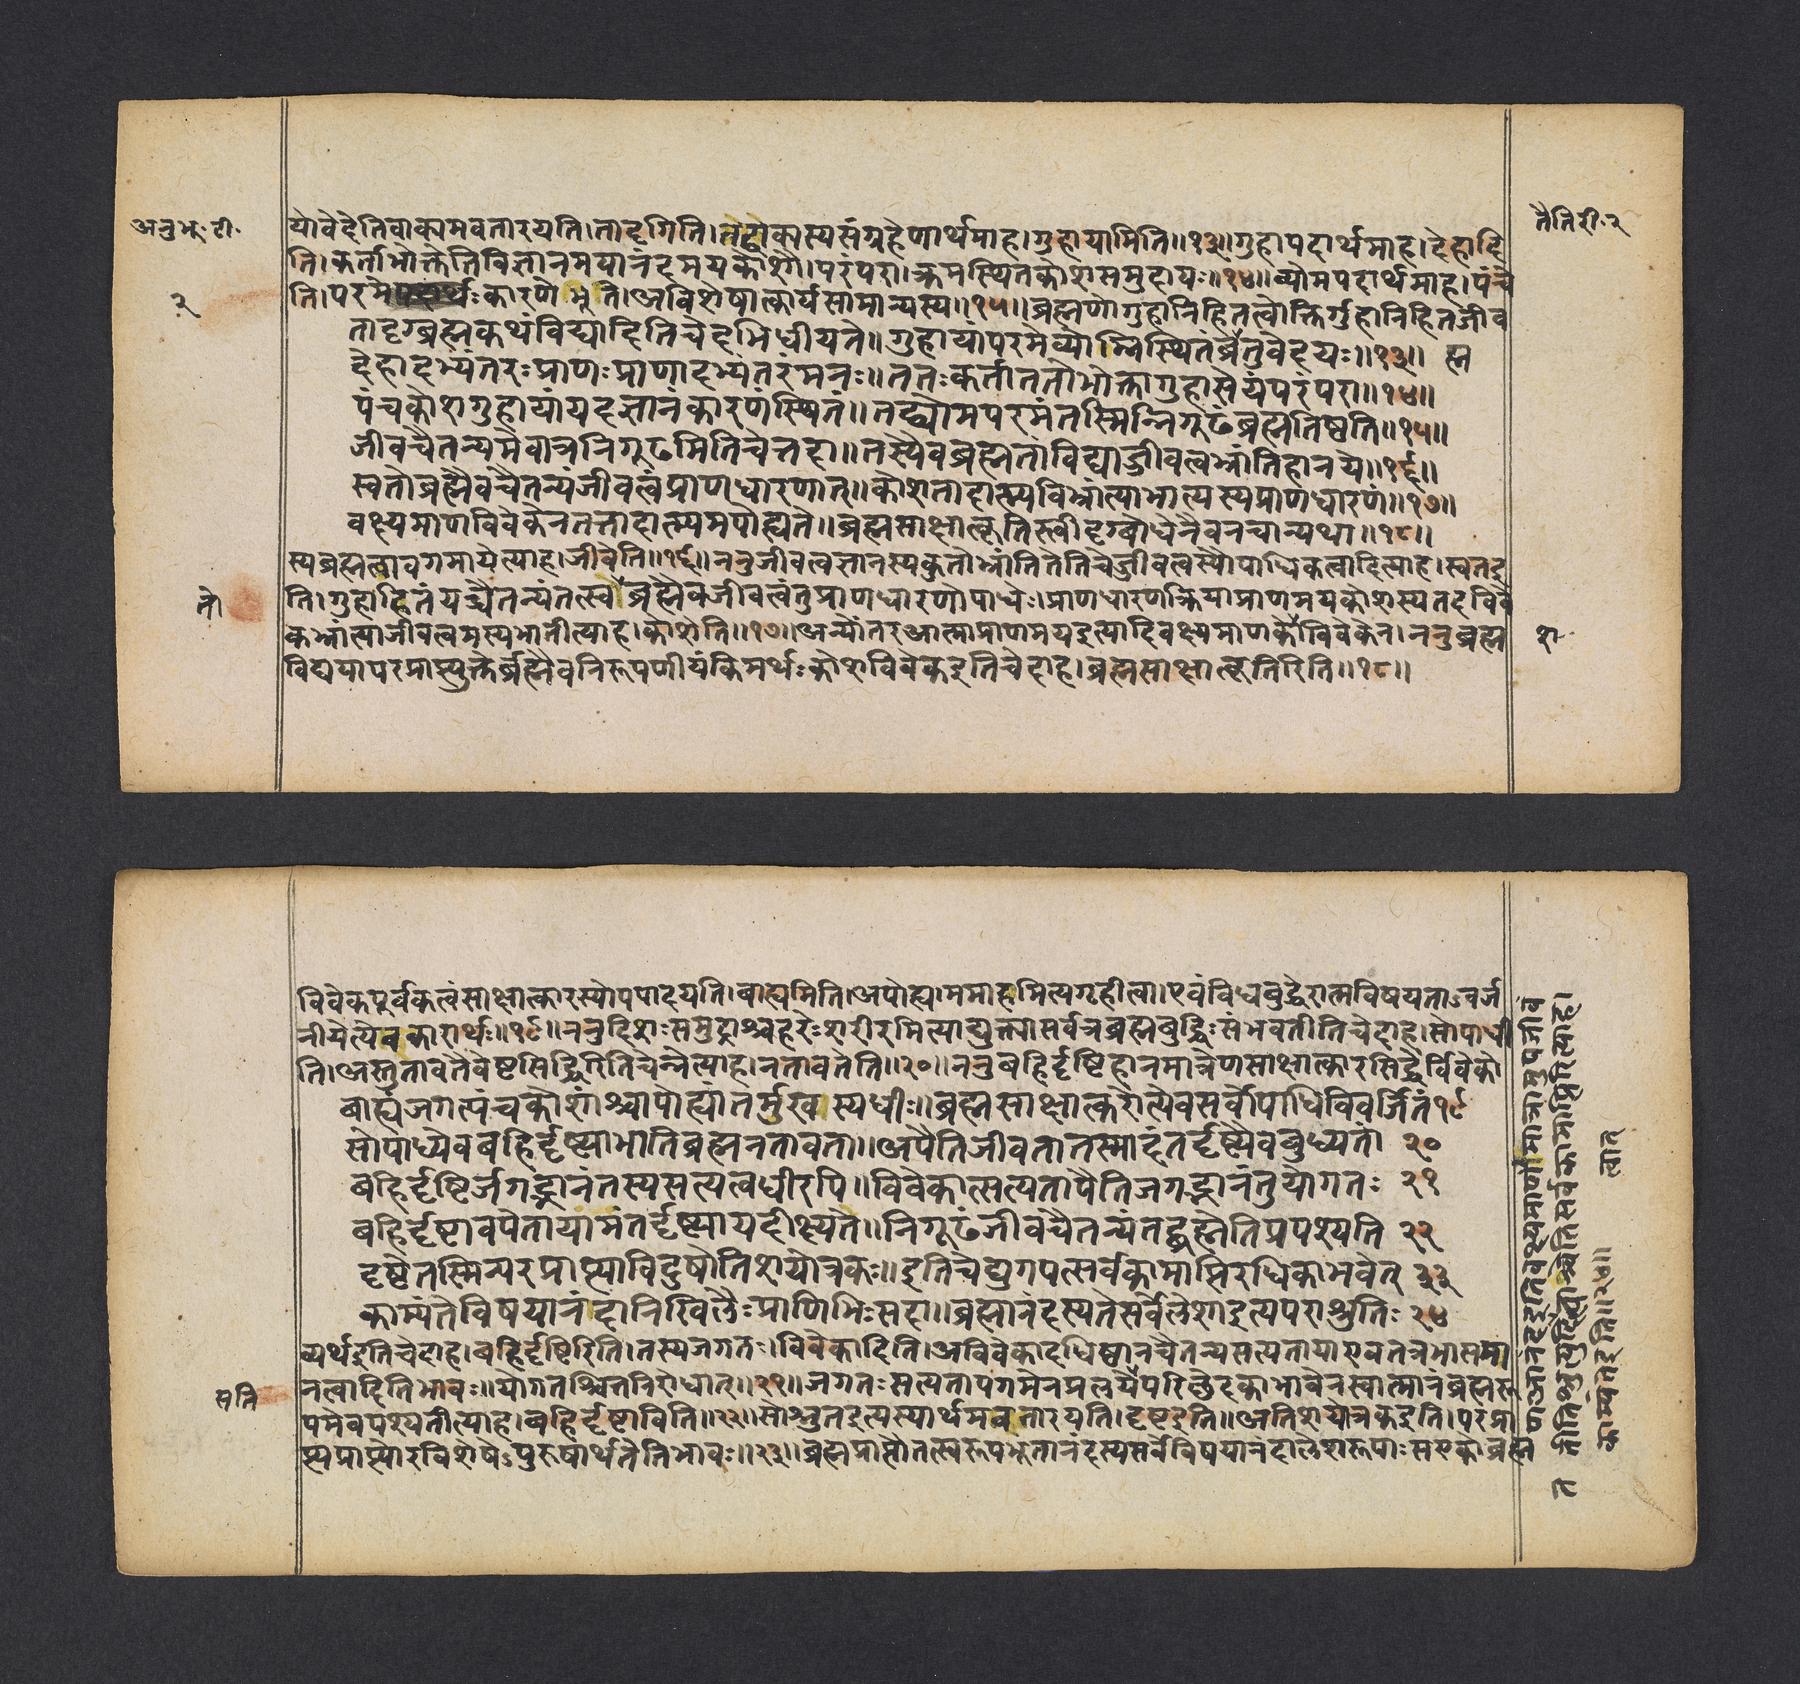 अनुभू॰टी॰
तैतिरी॰२
२
योवेदेतिवाक्यमवतारयति।तादृगिति।तद्वाक्यस्यसंग्रहेणार्थमाह।गुहायामिति॥१३॥गुहापदार्थमाह।देहादि
ति।कर्ताभोक्तेतिविज्ञानमयानंदमयकोशौ।परंपरा।क्रमस्थितकोशसमुदायः॥१४॥व्योमपदार्थमाह।पंचे
ति।परमेपदार्थःकारणेभुति।अविशेषात्कार्यसामान्यस्य॥१५॥ब्रह्मणोगुहानिहितत्वोक्तिर्गुहानिहितजीव
तादृग्ब्रह्मकथंविद्यादितिचेदभिधीयते॥गुहायांपरमेव्योम्निस्थितंब्रेतुवेदयः॥१३॥ ह्म
देहादभ्यंतरःप्राणःप्राणादभ्यंतरंमनः॥ततःकर्ताततोभोक्तागुहासेयंपरंपरा॥१४॥
पंचकोशगुहायांयदज्ञानंकारणंस्थितं॥तद्व्योमपरमंतस्मिन्निगूढंब्रह्मतिष्ठति॥१५॥
जीवचैतन्यमेवात्रनिगुढमितिचेत्तदा॥तस्यैवब्रह्मतांविद्याज्जीवत्वभ्रांतिहानये॥१६॥
स्वतोब्रह्मैवचैतन्यंजीवत्वंप्राणधारणात्॥कोशतादात्म्यविभ्रांत्याभात्यस्यप्राणधारणं॥१७॥
वक्ष्यमाणविवेकेनतत्तादात्म्यमपोह्यते॥ब्रह्मसाक्षात्कृतिस्त्वीदृग्बोधेनैवनचान्यथा॥१८॥
स्यब्रह्मत्वावगमायेत्याह।जीवेति॥१६॥ननुजीवत्वज्ञानस्यकुतोभ्रांतितेतिचेज्जीवत्वस्यौपाधिकत्वादित्याह।स्वतइ
ति।गुहाहितंयच्चैतन्यंतत्स्वब्रह्मैवजीवत्वंतुप्राणधारणोपाधेः।प्राणधारणक्रियाप्राणमयकोशस्यतदविवे
तो
कभ्रांत्याजीवत्वमस्यभातीत्याह।कोशेति॥१७॥अन्योंतरआत्माप्राणमयइत्यादिवक्ष्यमाणकोविवेकेन।ननुब्रह्म
श
विद्ययापरप्राप्त्युक्तेर्ब्रह्मैवनिरूपणीयंकिमर्थःकोशविवेकइतिचेदाह।ब्रह्मसाक्षात्कृतिरिति॥१८॥
विवेकपूर्वकत्वंसाक्षात्कारस्योपपादयति।बाह्यमिति।अपोह्य।ममाहमित्यगृहीत्वा।एवंविधबुद्धेरात्मविषयताऽवर्ज
नीयेत्येवकारार्थः॥१९॥ननुदिशःसमुद्राश्चहरेःशरीरमित्याद्युक्त्यासर्वत्रब्रह्मबुद्धिःसंभवतीतिचेदाह।सोपाधी
ति।अस्तुतावतैवेष्टसिद्धिरितिचेन्नेत्याह।नतावतेति॥२०॥ननुबहिर्दृष्टिहानमात्रेणसाक्षात्कारसिद्धेर्विवेको
बाह्यंजगत्पंचकोशांश्चापोह्यांतर्मुखास्यधीः॥ब्रह्मसाक्षात्करोत्येवसर्वोपाधिविवर्जितं१९
सोपाध्येवबहिर्दृष्ट्याभातिब्रह्मनतावता॥अपैतिजीवतातस्मादंतर्दृष्ट्यैवबुध्यतां २०
बहिर्दृष्टिर्जगद्भानंतस्यसत्यत्वधीरपि॥विवेकात्सत्यतापैतिजगद्भानंतुयोगतः २१
बहिर्दृष्टावपेतायामंतर्दृष्ट्यायदीक्ष्यते॥निगूढंजीवचैतन्यंतद्ब्रह्मेतिप्रपश्यति २२
दृष्टेतस्मिन्परप्राप्त्याविदुषोतिशयोत्रकः॥इतिचेद्युगपत्सर्वकामाप्तिरधिकाभवेत् २३
काम्यंतेविषयानंदानिखिलैःप्राणिभिःसदा॥ब्रह्मानंदस्यतेसर्वेलेशाइत्यपराश्रुतिः २४
व्यर्थइतिचेदाह।बहिर्दृष्टिरिति।तस्यजगतः।विवेकादिति।अविवेकादधिष्ठानचैतन्यसत्यतायाएवतत्रभासमा
नत्वादितिभावः॥योगतश्चित्तनिरोधात्॥२१॥जगतःसत्यतापगमेनप्रलयेपरिछेदकाभावेनस्वात्मानंब्रह्मरू
सति
पमेवपश्यतीत्याह।बहिर्दृष्टाविति॥२२॥सोश्नुतइत्यस्यार्थमवतारयति।दृष्टइति॥अतिशयोत्रकइति।परप्रा
प्त्यप्राप्त्योरविशेषेऽपुरुषार्थतेतिभावः॥२३॥ब्रह्मप्राप्तौतत्स्वरूपभूतानंदस्यसर्वेविषयानंदालेशरूपाःसएकोब्रह्म
काम्यंतइति॥२४॥
त्वात